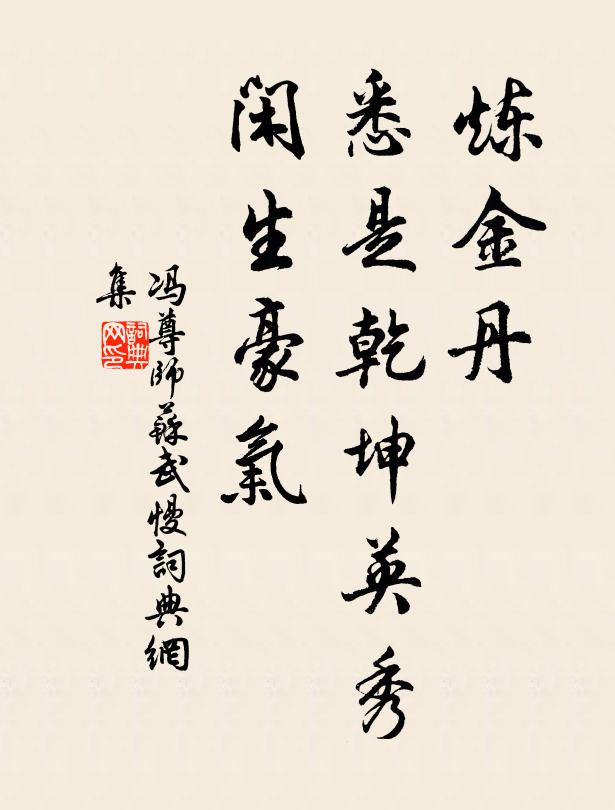 炼金丹
悉是乾坤英秀
闲生豪氣
冯尊師蘇武慢詞典網
集
詞典
网印